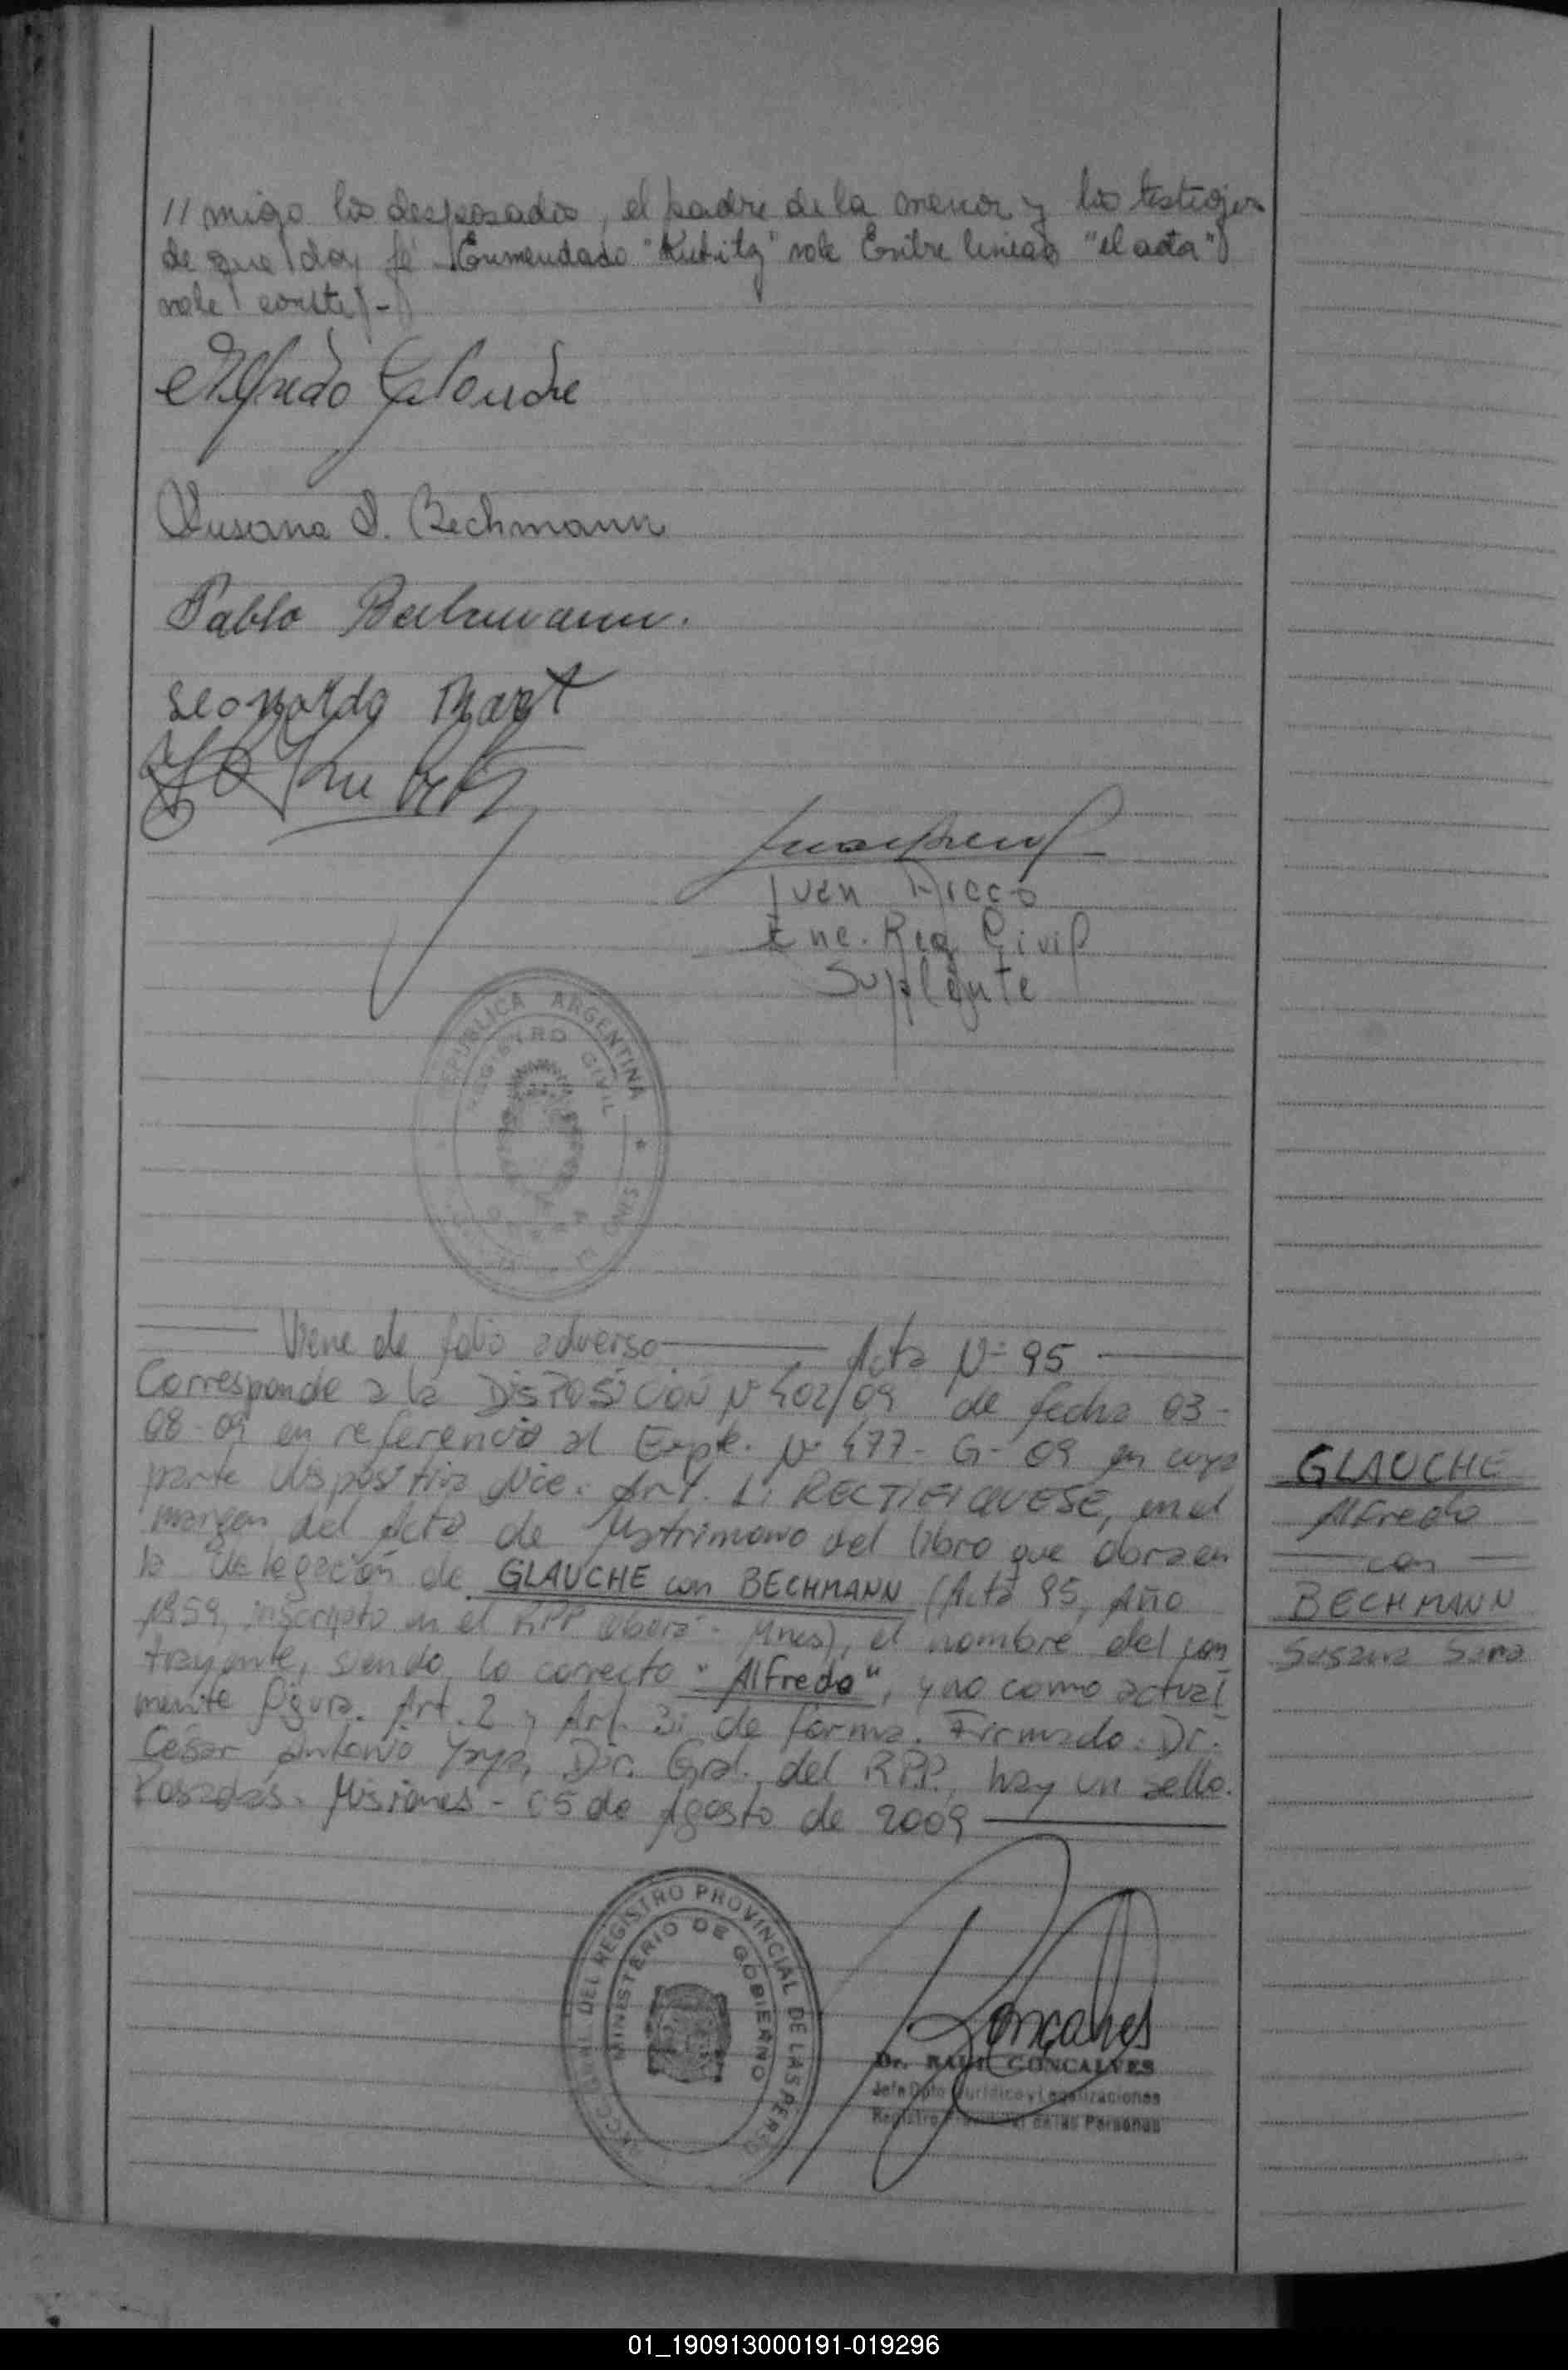 //migo los desposados, el padre de la menor y los testigos
de que doy fé. Enmendado "Kubitz" vale Entre lineas "el acta"
vale conste)-
Alfredo Glauche
Susana S. Bechmann
Pablo Bechmann.
Leonardo
Juan
Enc. Reg Civil
Suplente
REPUBLICA ARGENTINA
REGISTRO CIVIL
MISIONES
Viene de folio adverso Acta Nº 95
Corresponde a la DISPOSICION Nº 402/09 de fecha 03-
08-09 en referencia al Expte. Nº 477-G-09 en cuya
parte dispositiva dice: Art. 1: RECTIFIQUESE, en el
margen del Acta de Matrimonio del libro que obra en
la delegación de GLAUCHE con BECHMANN (Acta 95, Año
1959, inscripto en el RPP Oberá - Mnes), el nombre del con
trayente, siendo lo correcto "Alfredo", y no como actual
mente figura. Art. 2 y Art. 3: de forma. Firmado: Dr.
César Antonio Dir. Gral. del RPP, hay un sello.
Posadas. Misiones - 05 de Agosto de 2009
GLAUCHE
Alfredo
con
BECHMANN
Susana Sara
DEL REGISTRO PROVINCIAL DE LAS PERSO
MINISTERIO DE GOBIERNO
Goncalves
Dr. RAUL GONCALVES
Jefe Dpto Jurídico y Legalizaciones
Registro Provincial de las Personas
01_190913000191-019296